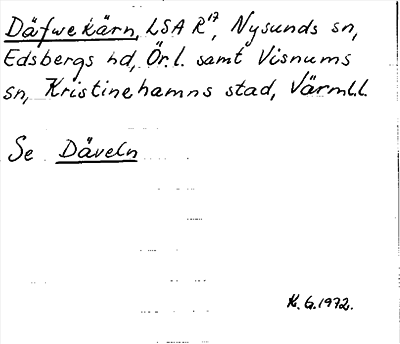 Däfwekärn, LSA R17, Nysunds sn,
Edsbergs hd, Ör.l. samt Visnums
sn, Kristinehamns stad, Värml.l.
Se Däveln
K.G.1972.